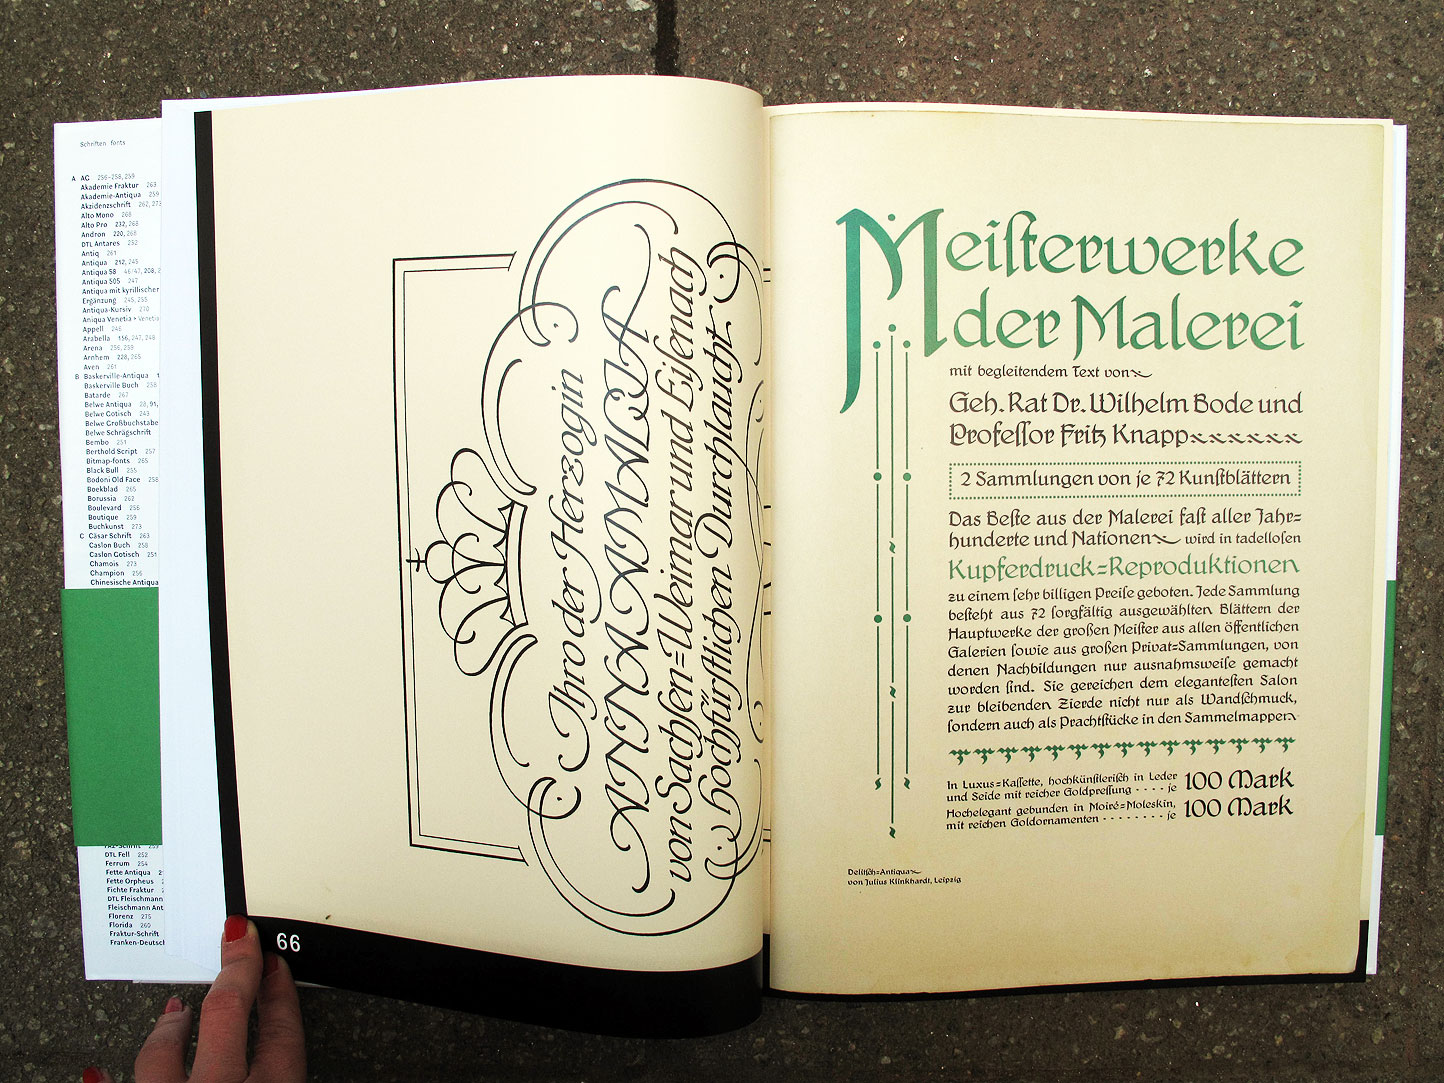 Schriften fonts
A AC 256–258, 259
Akademie Fraktur 263
Akademie-Antiqua 259
Akzidenzschrift 262, 273
Alto Mono 268
Alto Pro 232, 268
Andron 220, 268
DTL Antares 252
Antiq 261
Antiqua 212, 245
Antiqua 58 46-47, 208, 2
Antiqua 505 247
Antiqua mit kyrillischer
Ergänzung 245, 255
Antiqua-Kursiv 270
Aniqua Venetia + Venetia
Appell 246
Arabella 156, 247, 248
Arena 256, 258
Arnhem 228, 265
Aven 261
B Baskerville-Antiqua 1
Baskerville Buch 258
Batarde 267
Belwe Antiqua 28, 91,
Belwe Gotisch 243
Belwe Großbuchstabe
Belwe Schrägschrift
Bembo 251
Berthold Script 257
Bitmap-fonts 265
Black Bull 255
Bodoni Old Face 258
Boekblad 265
Borussia 262
Boulevard 256
Boutique 259
Buchkunst 273
C Cäsar Schrift 263
Caslon Buch 258
Caslon Gotisch 251
Chamois 273
Champion 256
Chinesische Antiqua
FAZ-Schrift 253
DTL Fell 252
Ferrum 254
Fette Antiqua 2
Fette Orpheus
Fichte Fraktur
DTL Fleischmann
Fleischmann Ant
Florenz 275
Florida 260
Fraktur-Schrift
Franken-Deutsch
Ihro der Herzogin
ANNA AMALIA
von Sachſen=Weimar und Eiſenach
Hochfürſtlichen Durchlaucht.
66
Meiſterwerke
der Malerei
mit begleitendem Text von
Geh. Rat Dr. Wilhelm Bode und
Profeſſor Fritz Knapp
2 Sammlungen von je 72 Kunſtblättern
Das Beſte aus der Malerei faſt aller Jahr=
hunderte und Nationen wird in tadelloſen
Kupferdruck=Reproduktionen
zu einem ſehr billigen Preiſe geboten. Jede Sammlung
beſteht aus 72 ſorgfältig ausgewählten Blättern der
Hauptwerke der großen Meiſter aus allen öffentlichen
Galerien ſowie aus großen Privat=Sammlungen, von
denen Nachbildungen nur ausnahmsweiſe gemacht
worden ſind. Sie gereichen dem eleganteſten Salon
zur bleibenden Zierde nicht nur als Wandſchmuck,
ſondern auch als Prachtſtücke in den Sammelmappen
In Luxus=Kaſſette, hochkünſtleriſch in Leder
und Seide mit reicher Goldpreſſung - - - - je 100 Mark
Hochelegant gebunden in Moiré=Moleskin,
mit reichen Goldornamenten - - - - - - - - je 100 Mark
Delitſch=Antiqua
von Julius Klinkhardt, Leipzig